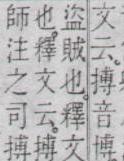 文云。搏音博
盜賊也。釋文
也。釋文云。搏
師注之司搏